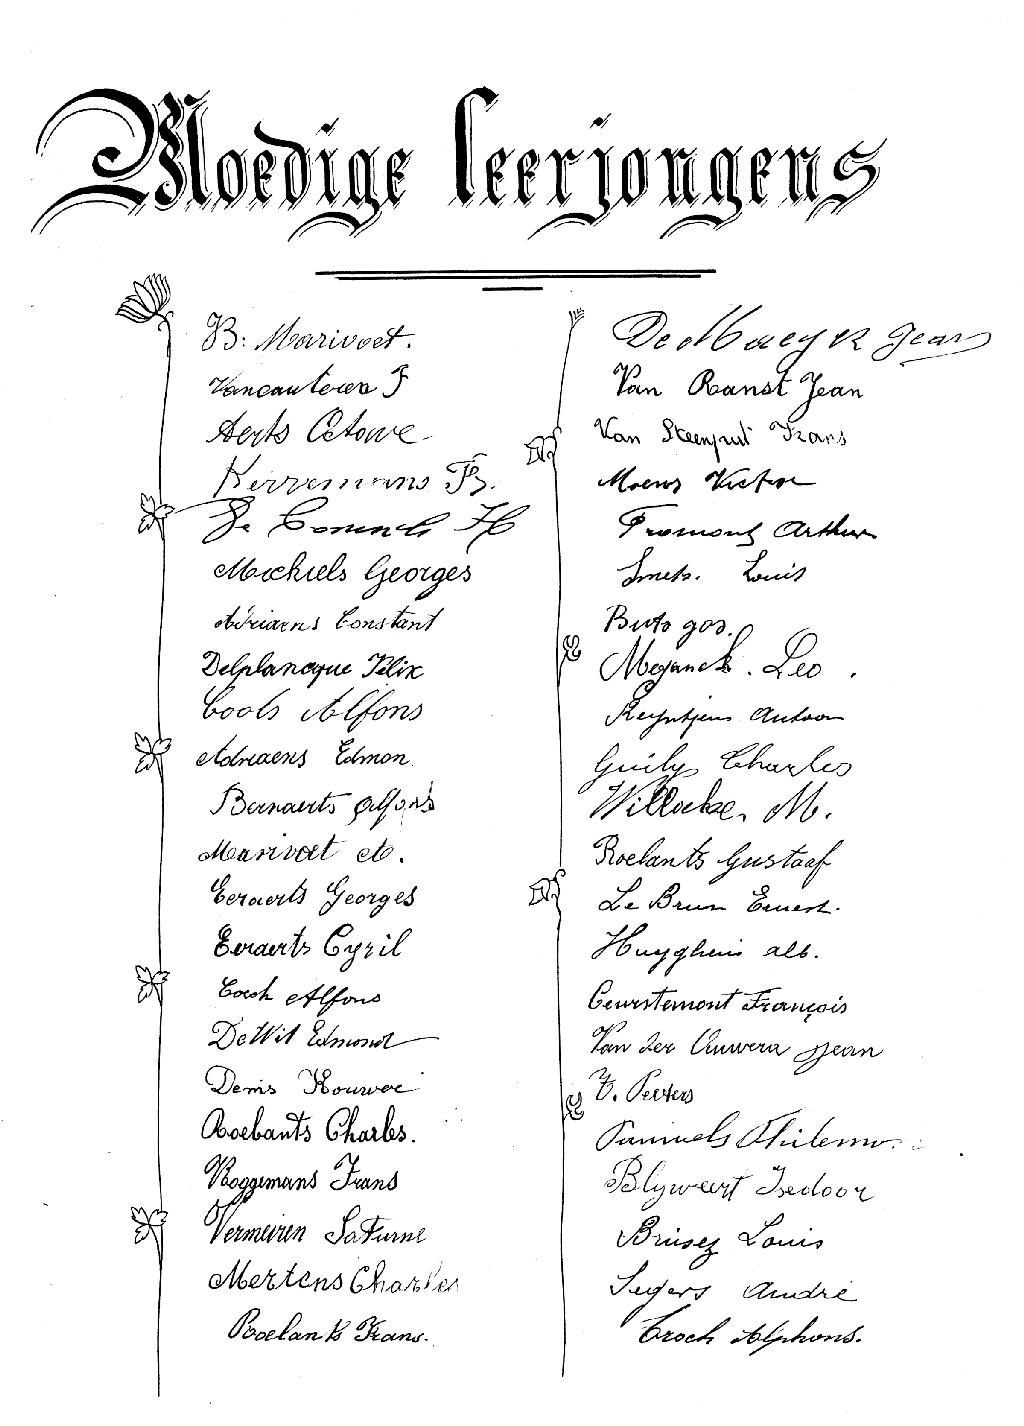 Moedige leerjongens
B: Marivoet.
Vancauteren F
Aerts Octave
Kerremans Fr.
De Coninck H
Michiels Georges
Adriaens Constant
Delplancque Félix
Cools Alfons
Adriaens Edmon
Bernaerts Alfons
Marivoet A.
Eeraerts Georges
Eeraerts Cyril
Coeck Alfons
De Wit Edmond
Denis
Roelants Charles.
Roggemans Frans
Vermeiren Saturne
Mertens Charles
Roelants Frans.
De Maeyer Jean
Van Ranst Jean
Van Steenput Frans
Moens Victor
Fromont Arthur
Smets. Louis
Buts
Meganck. Leo.
Reyntjens Antoon
Guily Charles
Willocke. M.
Roelants Gustaaf
Le Brun Ernest.
Huyghens alb.
Ceurstemont François
Van der Auwera Jean
F. Peeters
Pauwels Philemo.
Blyweert Isedoor
Brusez Louis
Segers André
Croch Alphons.